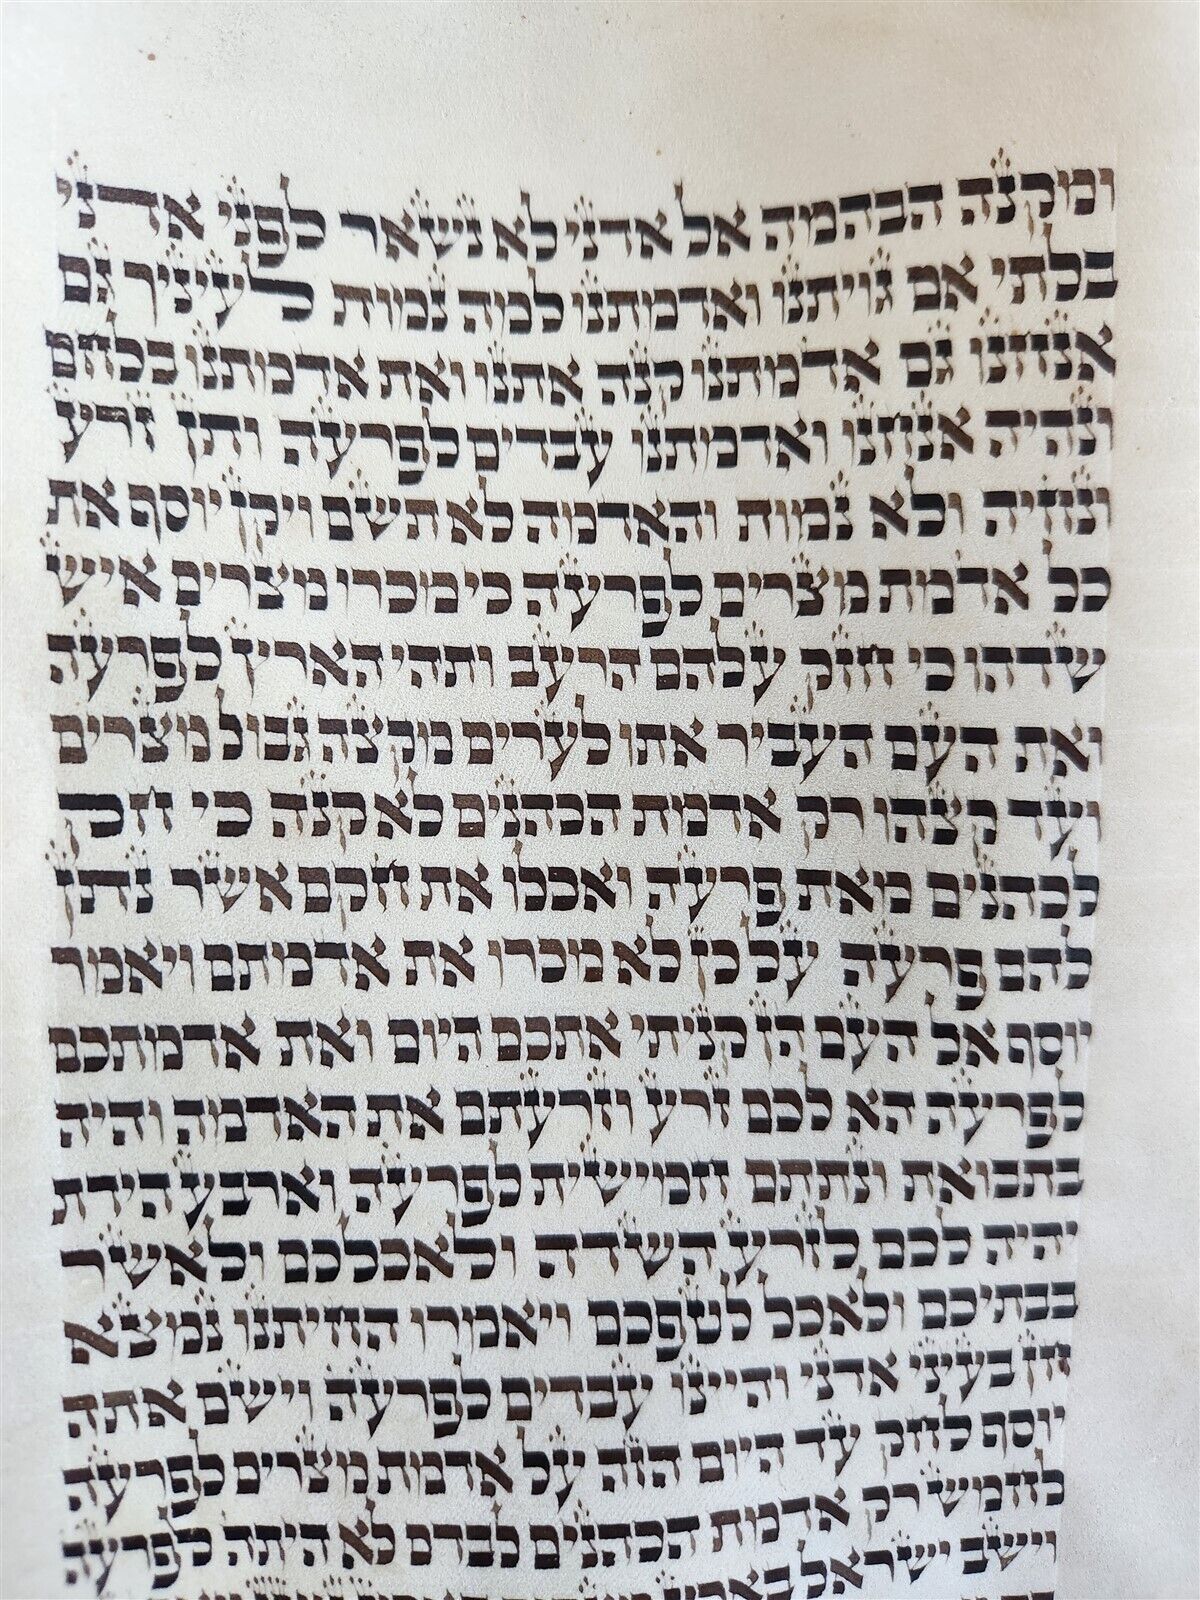 ומקנה הבהמה אל אדני לא נשאר לפני אדני
בלתי אם גויתנו ואדמתנו למה נמות לעיניך גם
אנחנו גם אדמתנו קנה אתנו ואת אדמתנו בלחם
ונהיה אנחנו ואדמתנו עבדים לפרעה ותן זרע
ונחיה ולא נמות והאדמה לא תשם ויקן יוסף את
כל אדמת מצרים לפרעה כי מכרו מצרים איש
שדהו כי חזק עלהם הרעב ותהי הארץ לפרעה
ואת העם העביר אתו לערים מקצה גבול מצרים
ועד קצהו רק אדמת הכהנים לא קנה כי חק
לכהנים מאת פרעה ואכלו את חקם אשר נתן
להם פרעה על כן לא מכרו את אדמתם ויאמר
יוסף אל העם הן קניתי אתכם היום ואת אדמתכם
לפרעה הא לכם זרע וזרעתם את האדמה והיה
בתבואת ונתתם חמישית לפרעה וארבע הידת
יהיה לכם לזרע השדה ולאכלכם ולאשר
בבתיכם ולאכל לטפכם ויאמרו החיתנו נמצא
חן בעיני אדני והיינו עבדים לפרעה וישם אתה
יוסף לחק עד היום הזה על אדמת מצרים לפרעה
לחמש רק אדמת הכהנים לבדם לא היתה לפרעה
וישב ישראל בארץ